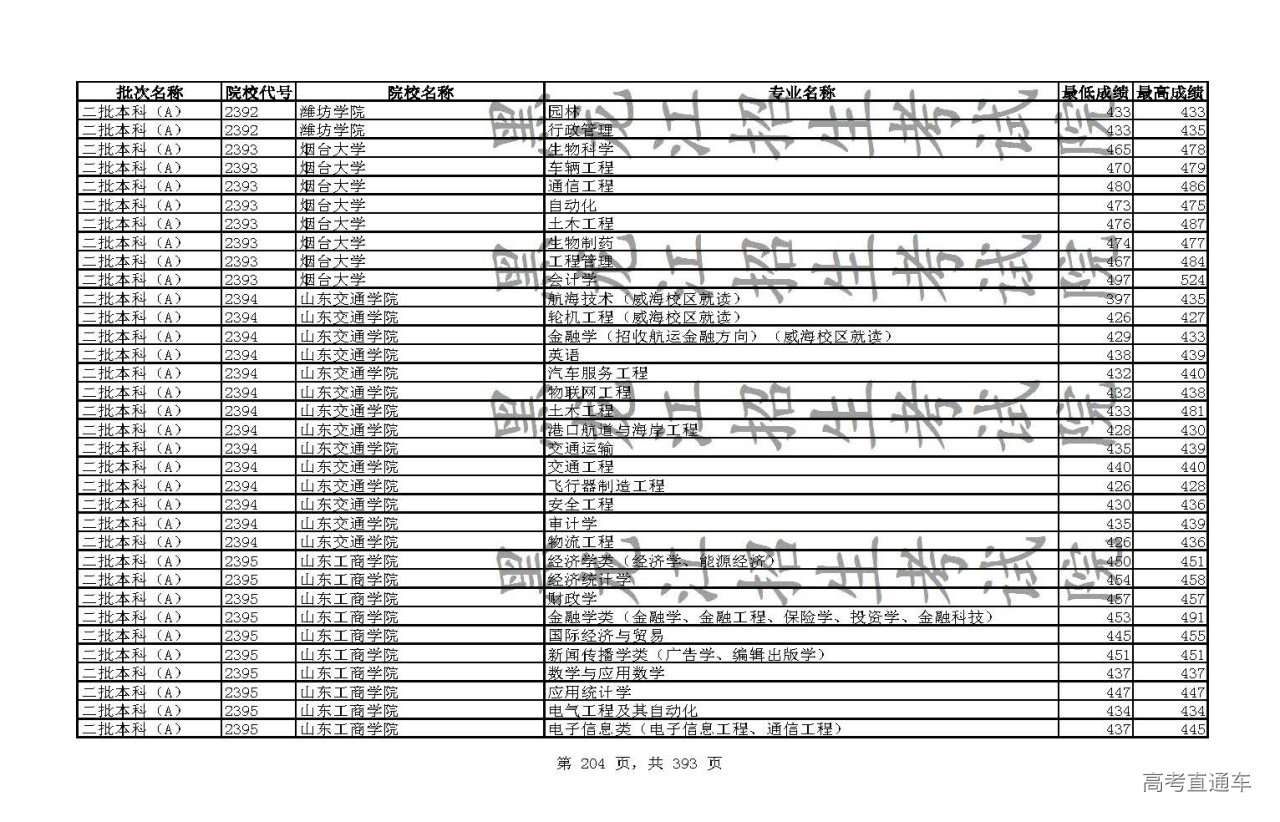 批次名称 院校代号 院校名称 专业名称 最低成绩 最高成绩
二批本科（A） 2392 潍坊学院 园林 433 433
二批本科（A） 2392 潍坊学院 行政管理 433 435
二批本科（A） 2393 烟台大学 生物科学 465 478
二批本科（A） 2393 烟台大学 车辆工程 470 479
二批本科（A） 2393 烟台大学 通信工程 480 486
二批本科（A） 2393 烟台大学 自动化 473 475
二批本科（A） 2393 烟台大学 土木工程 476 487
二批本科（A） 2393 烟台大学 生物制药 474 477
二批本科（A） 2393 烟台大学 工程管理 467 484
二批本科（A） 2393 烟台大学 会计学 497 524
二批本科（A） 2394 山东交通学院 航海技术（威海校区就读） 397 435
二批本科（A） 2394 山东交通学院 轮机工程（威海校区就读） 426 427
二批本科（A） 2394 山东交通学院 金融学（招收航运金融方向）（威海校区就读） 429 433
二批本科（A） 2394 山东交通学院 英语 438 439
二批本科（A） 2394 山东交通学院 汽车服务工程 432 440
二批本科（A） 2394 山东交通学院 物联网工程 432 438
二批本科（A） 2394 山东交通学院 土木工程 433 481
二批本科（A） 2394 山东交通学院 港口航道与海岸工程 428 430
二批本科（A） 2394 山东交通学院 交通运输 435 439
二批本科（A） 2394 山东交通学院 交通工程 440 440
二批本科（A） 2394 山东交通学院 飞行器制造工程 426 428
二批本科（A） 2394 山东交通学院 安全工程 430 436
二批本科（A） 2394 山东交通学院 审计学 435 439
二批本科（A） 2394 山东交通学院 物流工程 426 436
二批本科（A） 2395 山东工商学院 经济学类（经济学、能源经济） 450 451
二批本科（A） 2395 山东工商学院 经济统计学 454 458
二批本科（A） 2395 山东工商学院 财政学 457 457
二批本科（A） 2395 山东工商学院 金融学类（金融学、金融工程、保险学、投资学、金融科技） 453 491
二批本科（A） 2395 山东工商学院 国际经济与贸易 445 455
二批本科（A） 2395 山东工商学院 新闻传播学类（广告学、编辑出版学） 451 451
二批本科（A） 2395 山东工商学院 数学与应用数学 437 437
二批本科（A） 2395 山东工商学院 应用统计学 447 447
二批本科（A） 2395 山东工商学院 电气工程及其自动化 434 434
二批本科（A） 2395 山东工商学院 电子信息类（电子信息工程、通信工程） 437 445
黑龙江招生考试院
黑龙江招生考试院
黑龙江招生考试院
黑龙江招生考试院
第 204 页，共 393 页
高考直通车